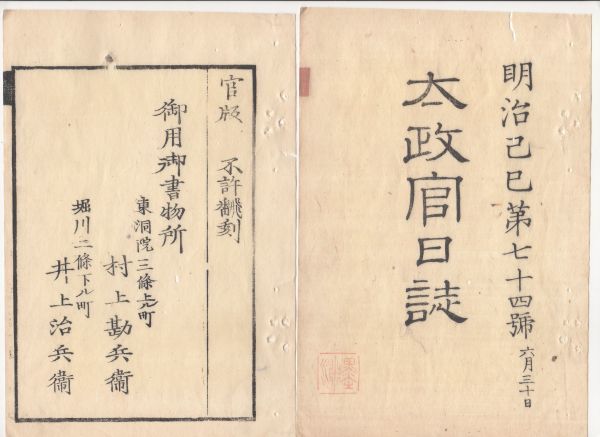 明治己巳第七十四號 六月三十日
太政官日誌
官版 不許飜刻
御用御書物所
東洞院三條上ル町
村上勘兵衞
堀川二條下ル町
井上治兵衞